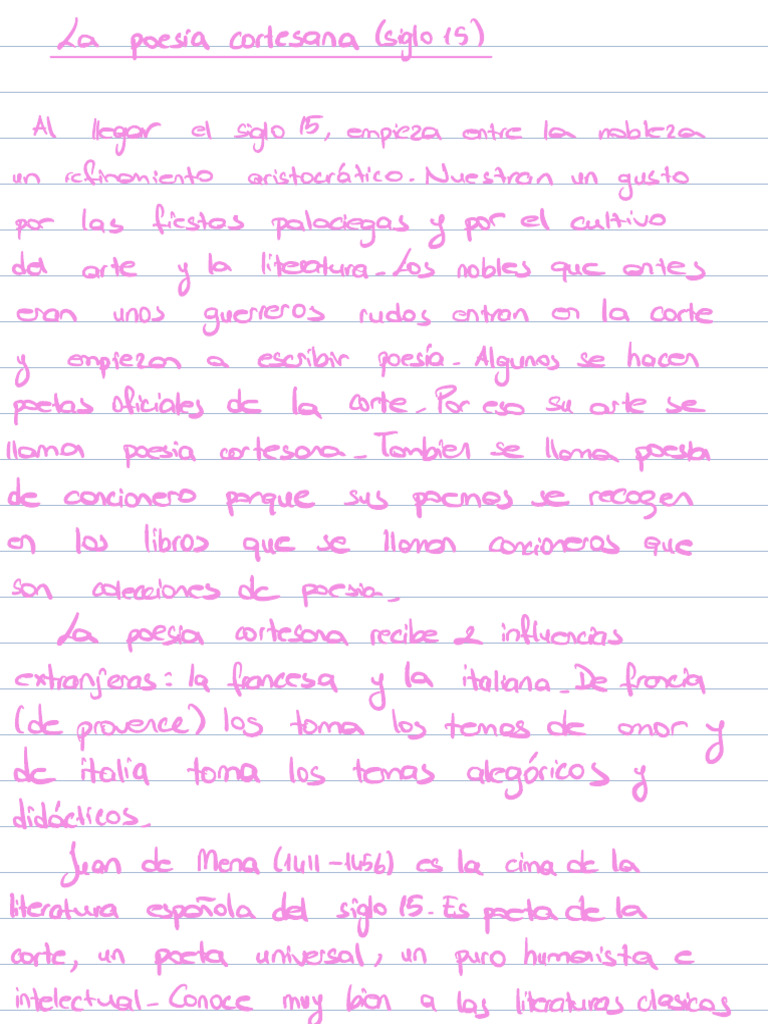 La poesía cortesana (siglo 15)
Al llegar el siglo 15, empieza entre la nobleza
un refinamiento aristocrático. Nuestran un gusto
por las fiestas palaciegas y por el cultivo
del arte y la literatura. Los nobles que antes
eran unos guerreros rudos entran en la corte
y empiezan a escribir poesía. Algunos se hacen
poetas oficiales de la corte. Por eso su arte se
llama poesia cortesana. Tambien se llama poesia
de cancionero porque sus poemas se recogen
en los libros que se llaman cancioneros que
son colecciones de poesia.
La poesia cortesana recibe 2 influencias
extranjeras: la francesa y la italiana. De francia
(de provence) los toma los temas de amor y
de italia toma los temas alegóricos y
didácticos.
Juan de Mena (1411-1456) es la cima de la
literatura española del siglo 15. Es poeta de la
corte, un poeta universal, un puro humanista e
intelectual. Conoce muy bien a las literaturas clasicas